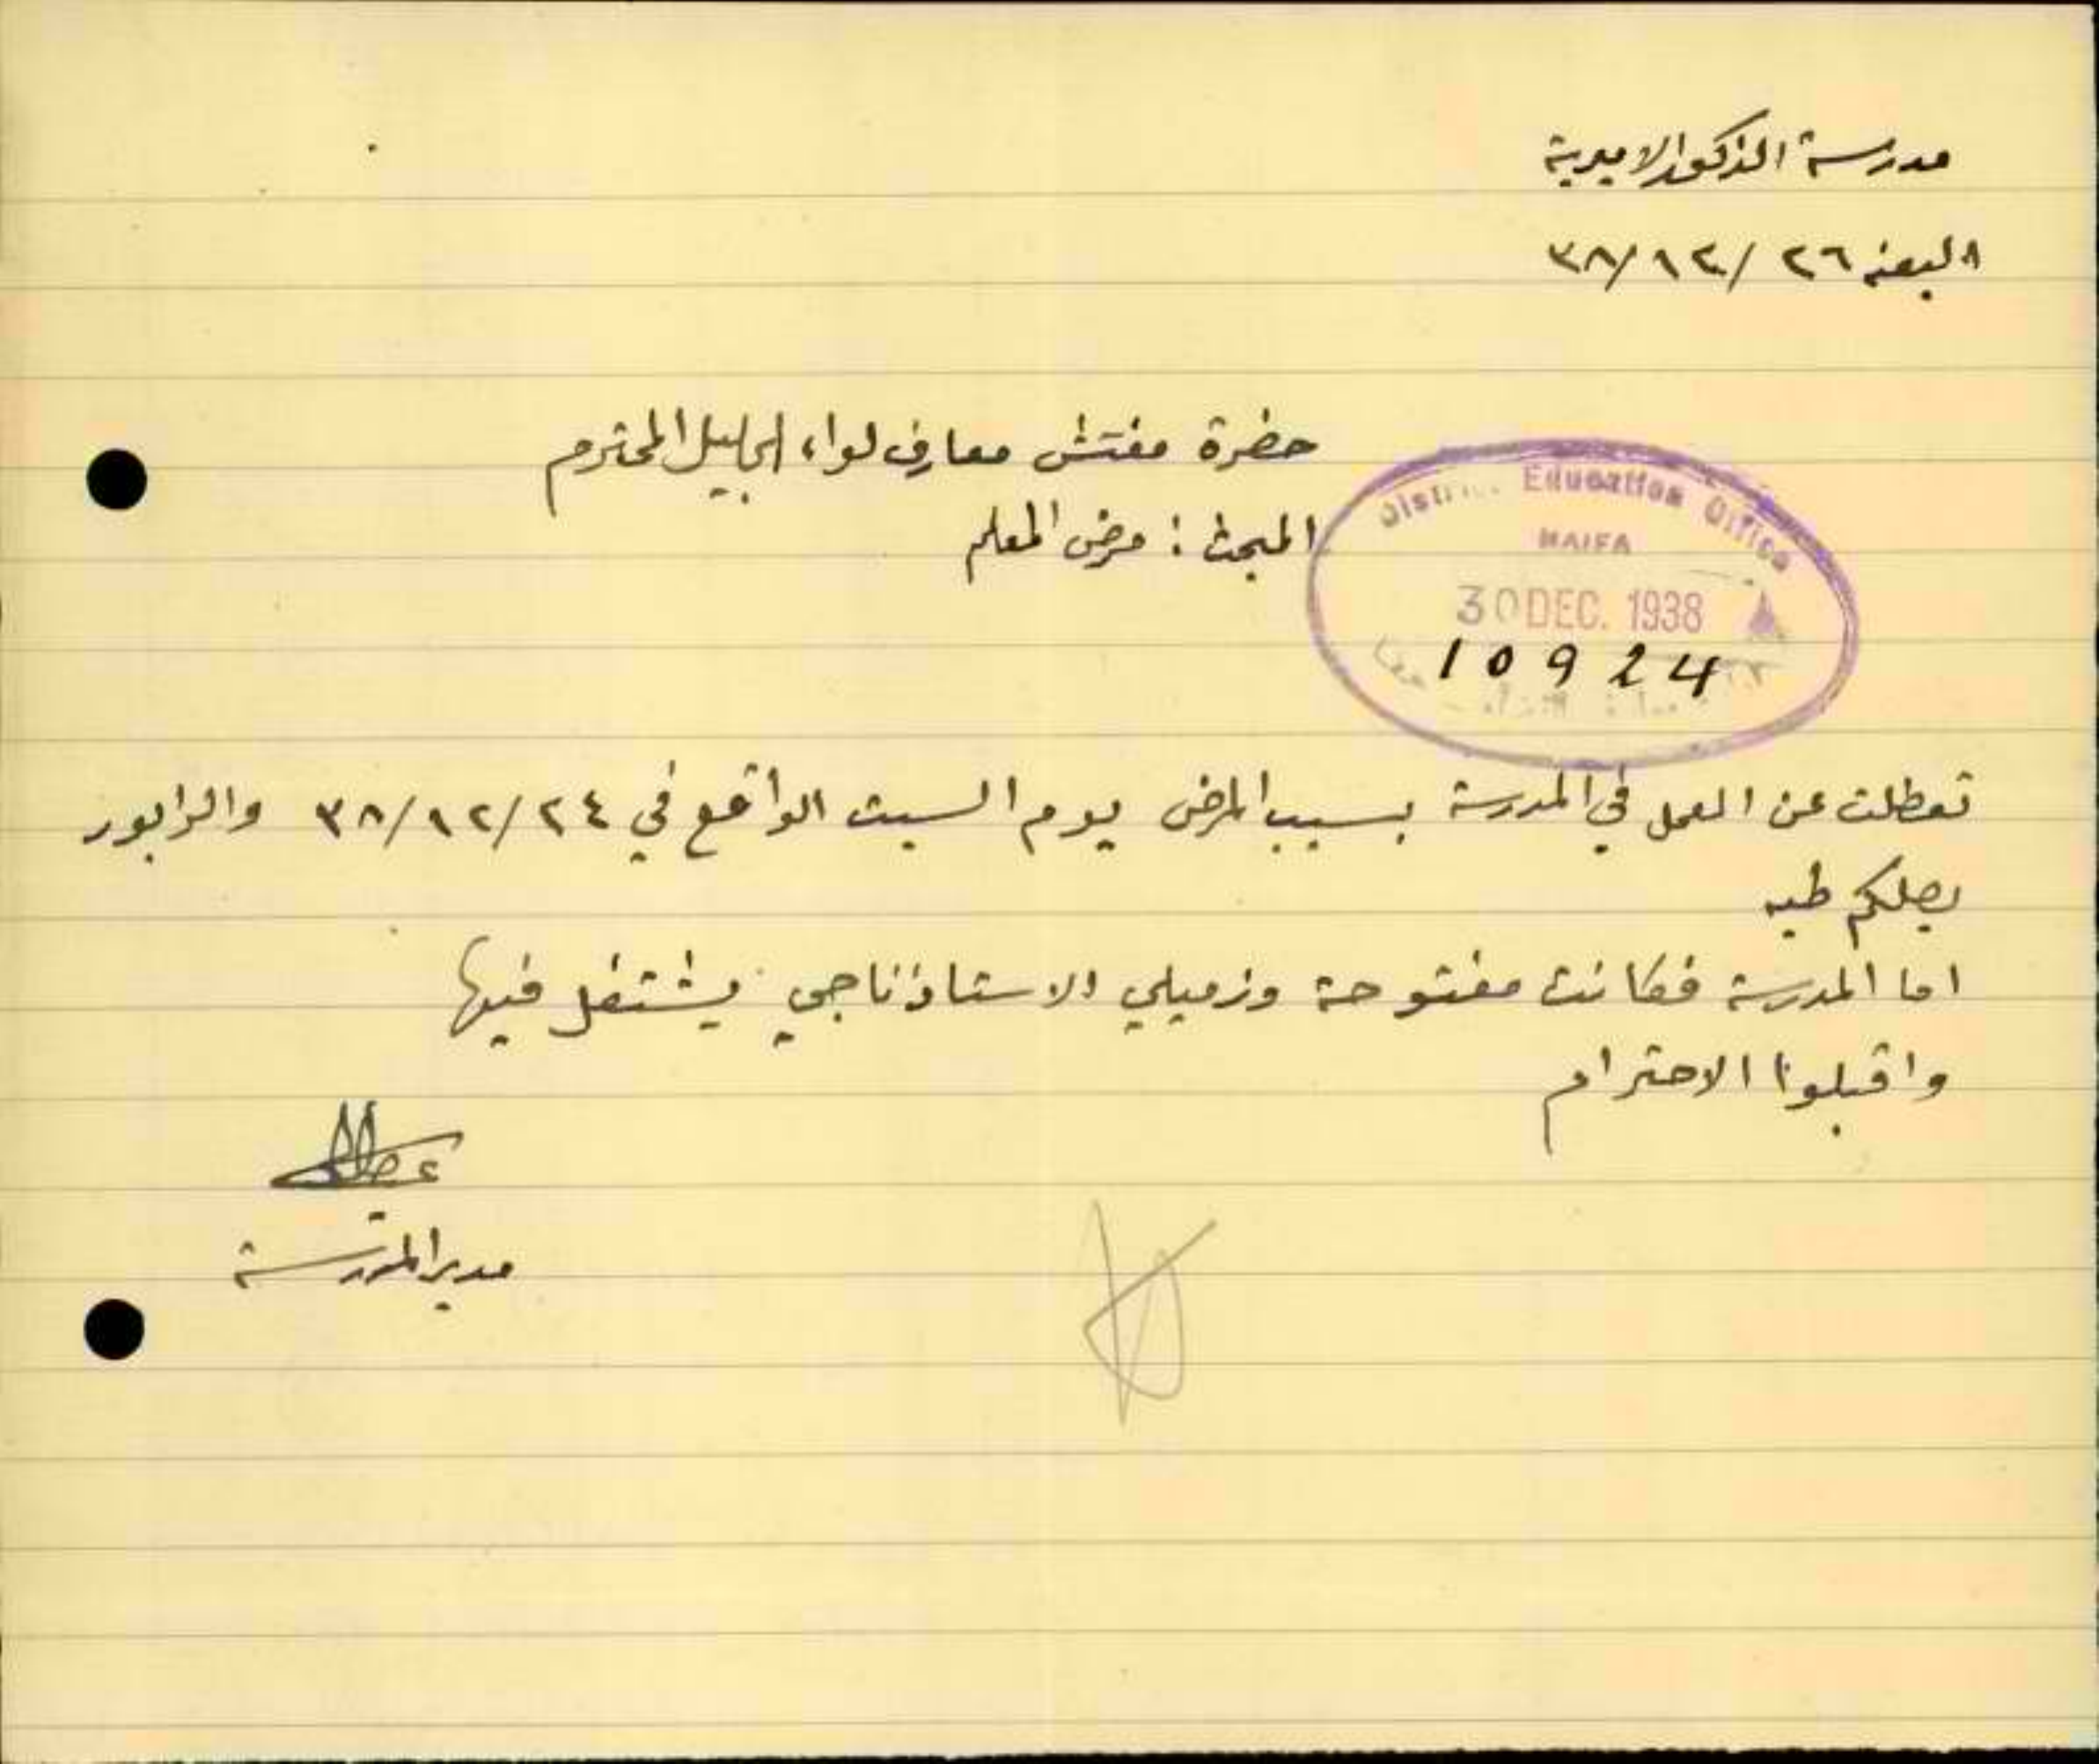 مدرسة الذكور الاميرية
البعنه ٢٦/١٢/٣٨
حضرة مفتش معارف لواء الجليل المحترم
المبحث : مرض المعلم
District Education Office
HAIFA
30 DEC. 1938
10924
تعطلت عن العمل في المدرسة بسبب المرض يوم السبت الواقع في ٢٤/١٢/٣٨ والرابور
يصلكم طيه
اما المدرسة فكانت مفتوحة وزميلي الاستاذ ناجي يشتغل فيها
واقبلوا الاحترام
مدير المدرسة